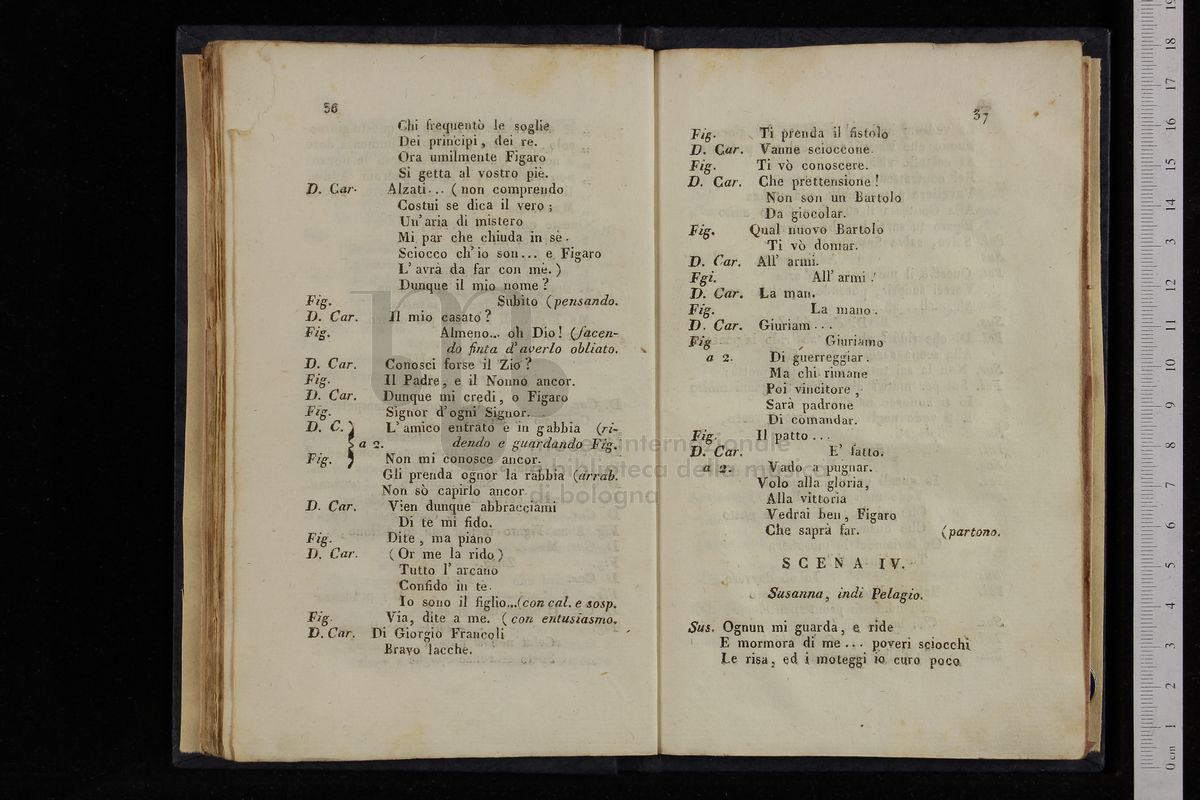 36
Chi frequentò le soglie
Dei principi, dei re.
Ora umilmente Figaro
Si getta al vostro piè.
D. Car. Alzati... (non comprendo
Costui se dica il vero;
Un' aria di mistero
Mi par che chiuda in sè.
Sciocco ch' io son... e Figaro
L' avrà da far con mè.)
Dunque il mio nome?
Fig. Subito (pensando.
D. Car. Il mio casato?
Fig. Almeno... oh Dio! (facen-
do finta d' averlo obliato.
D. Car. Conosci forse il Zio?
Fig. Il Padre, e il Nonno ancor.
D. Car. Dunque mi credi, o Figaro
Fig. Signor d' ogni Signor.
D. C. } L' amico entrato è in gabbia (ri-
a 2. dendo e guardando Fig.
Fig. } Non mi conosce ancor.
Gli prenda ognor la rabbia (arrab.
Non sò capirlo ancor
D. Car. Vien dunque abbracciami
Di te mi fido.
Fig. Dite, ma piano
D. Car. (Or me la rido)
Tutto l' arcano
Confido in tè.
Io sono il figlio...(con cal. e sosp.
Fig. Via, dite a me. (con entusiasmo.
D. Car. Di Giorgio Francoli
Bravo lacchè.
37
Fig. Ti prenda il fistolo
D. Car. Vanne scioccone.
Fig. Ti vò conoscere.
D. Car. Che prettensione!
Non son un Bartolo
Da giocolar.
Fig. Qual nuovo Bartolo
Ti vò domar.
D. Car. All' armi.
Fgi. All' armi!
D. Car. La man.
Fig. La mano.
D. Car. Giuriam...
Fig Giuriamo
a 2. Di guerreggiar.
Ma chi rimane
Poi vincitore,
Sarà padrone
Di comandar.
Fig. Il patto...
D. Car. E' fatto.
a 2. Vado a pugnar.
Volo alla gloria,
Alla vittoria
Vedrai ben, Figaro
Che saprà far. (partono.
SCENA IV.
Susanna, indi Pelagio.
Sus. Ognun mi guarda, e ride
E mormora di me... poveri sciocchi
Le risa, ed i moteggi io curo poco
museo internazionale
e biblioteca della musica
di bologna
0 cm 1 2 3 4 5 6 7 8 9 10 11 12 13 14 15 16 17 18 19